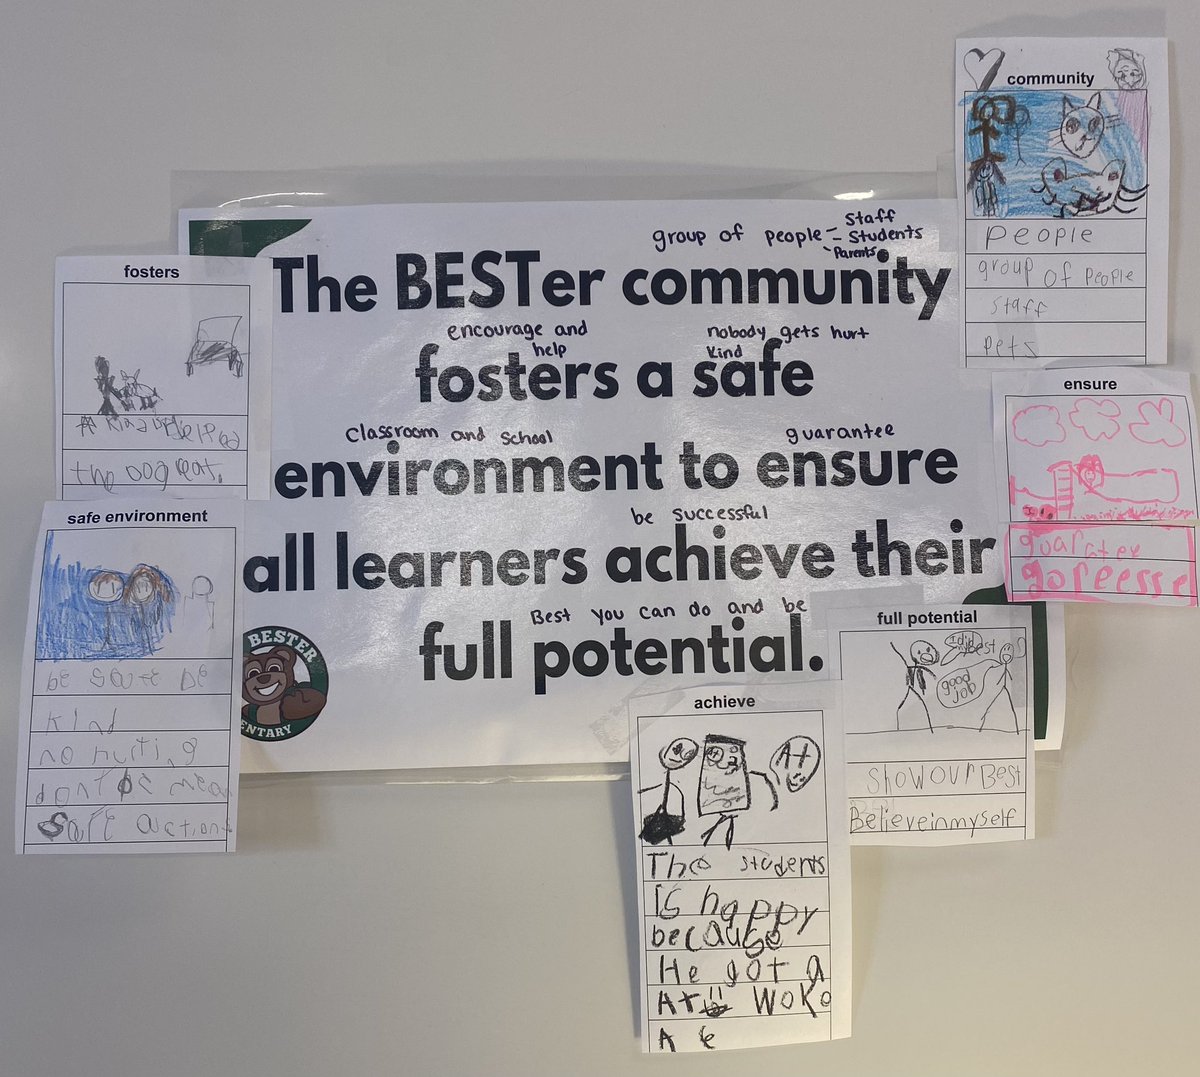 group of people - Staff
- Students
- Parents
The BESTer community
encourage and
help
nobody gets hurt
kind
fosters a safe
Classroom and school
guarantee
environment to ensure
be successful
all learners achieve their
Best you can do and be
full potential.
BESTER
ENTARY
community
people
group of people
staff
pets
fosters
the dog eat.
safe environment
kind
safe action
ensure
guaratee
full potential
I did
my Best
good
job
Show our Best
Believe in myself
achieve
A+
A+
The students
Is happy
because
He got a
A+